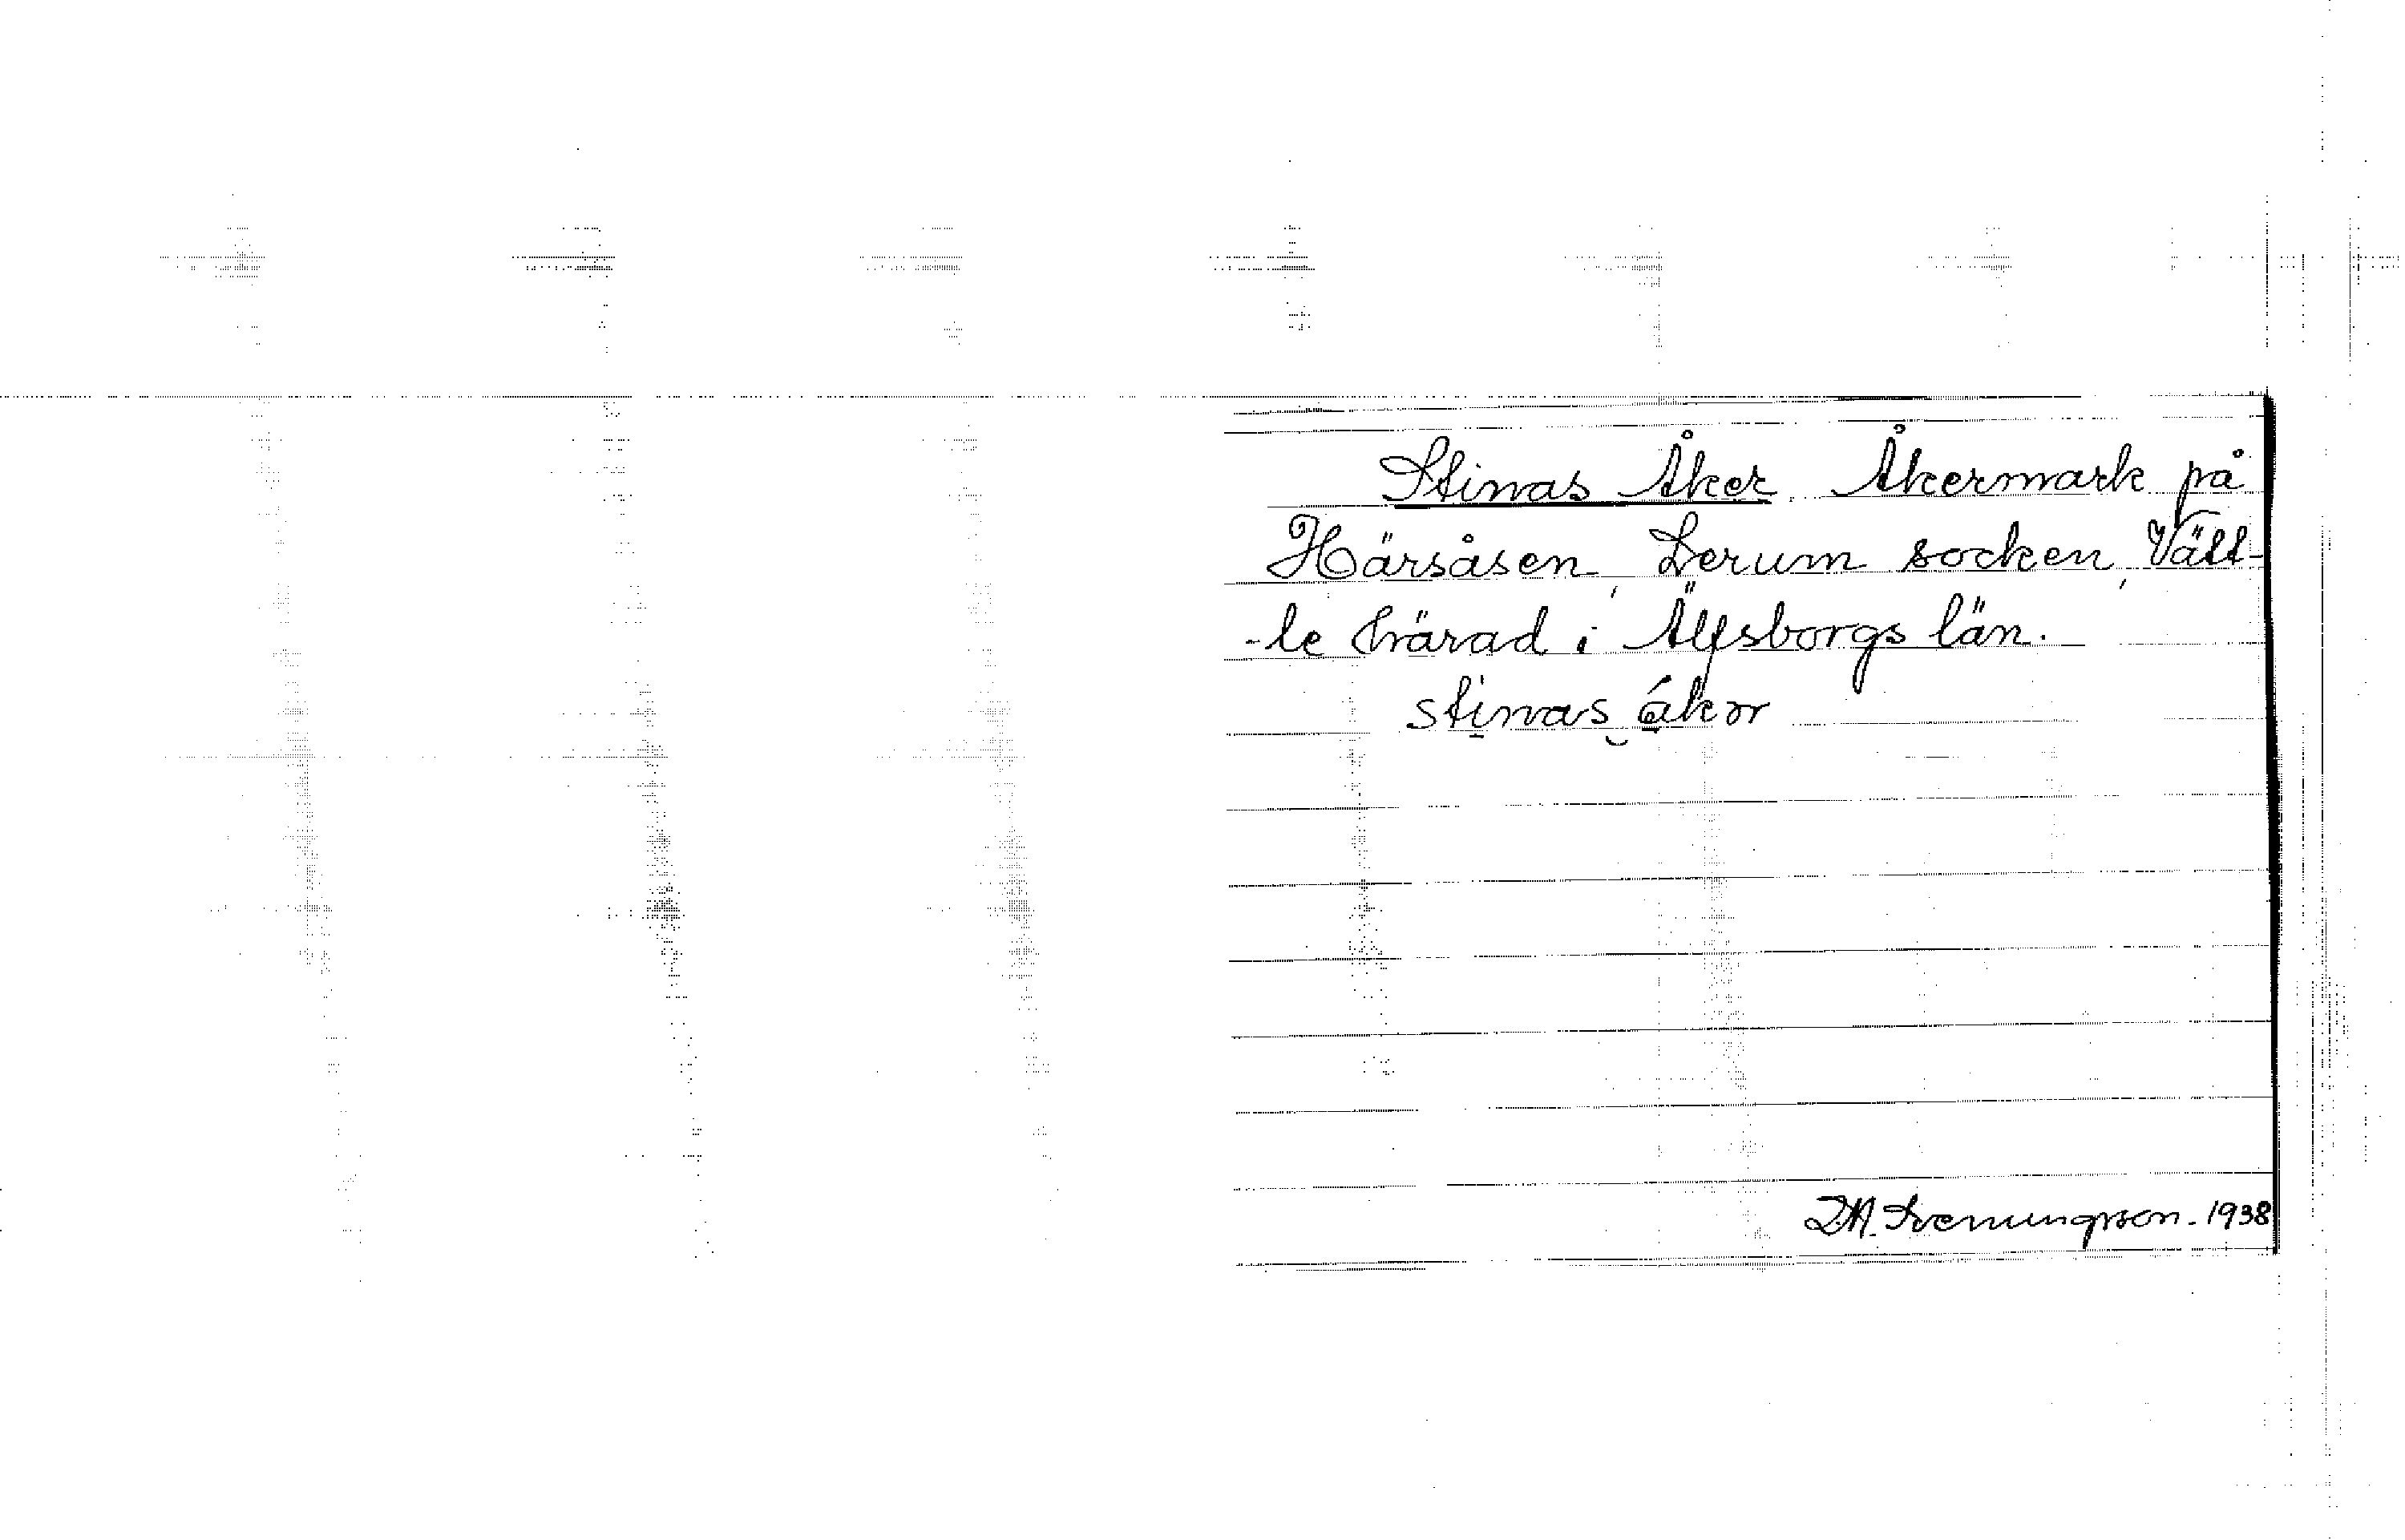 Stinas Åker. Åkermark på
Härsåsen, Lerum socken, Vätt-
-le härad i Älfsborgs län.
stinas åker
D.A. Svenungsson. 1938